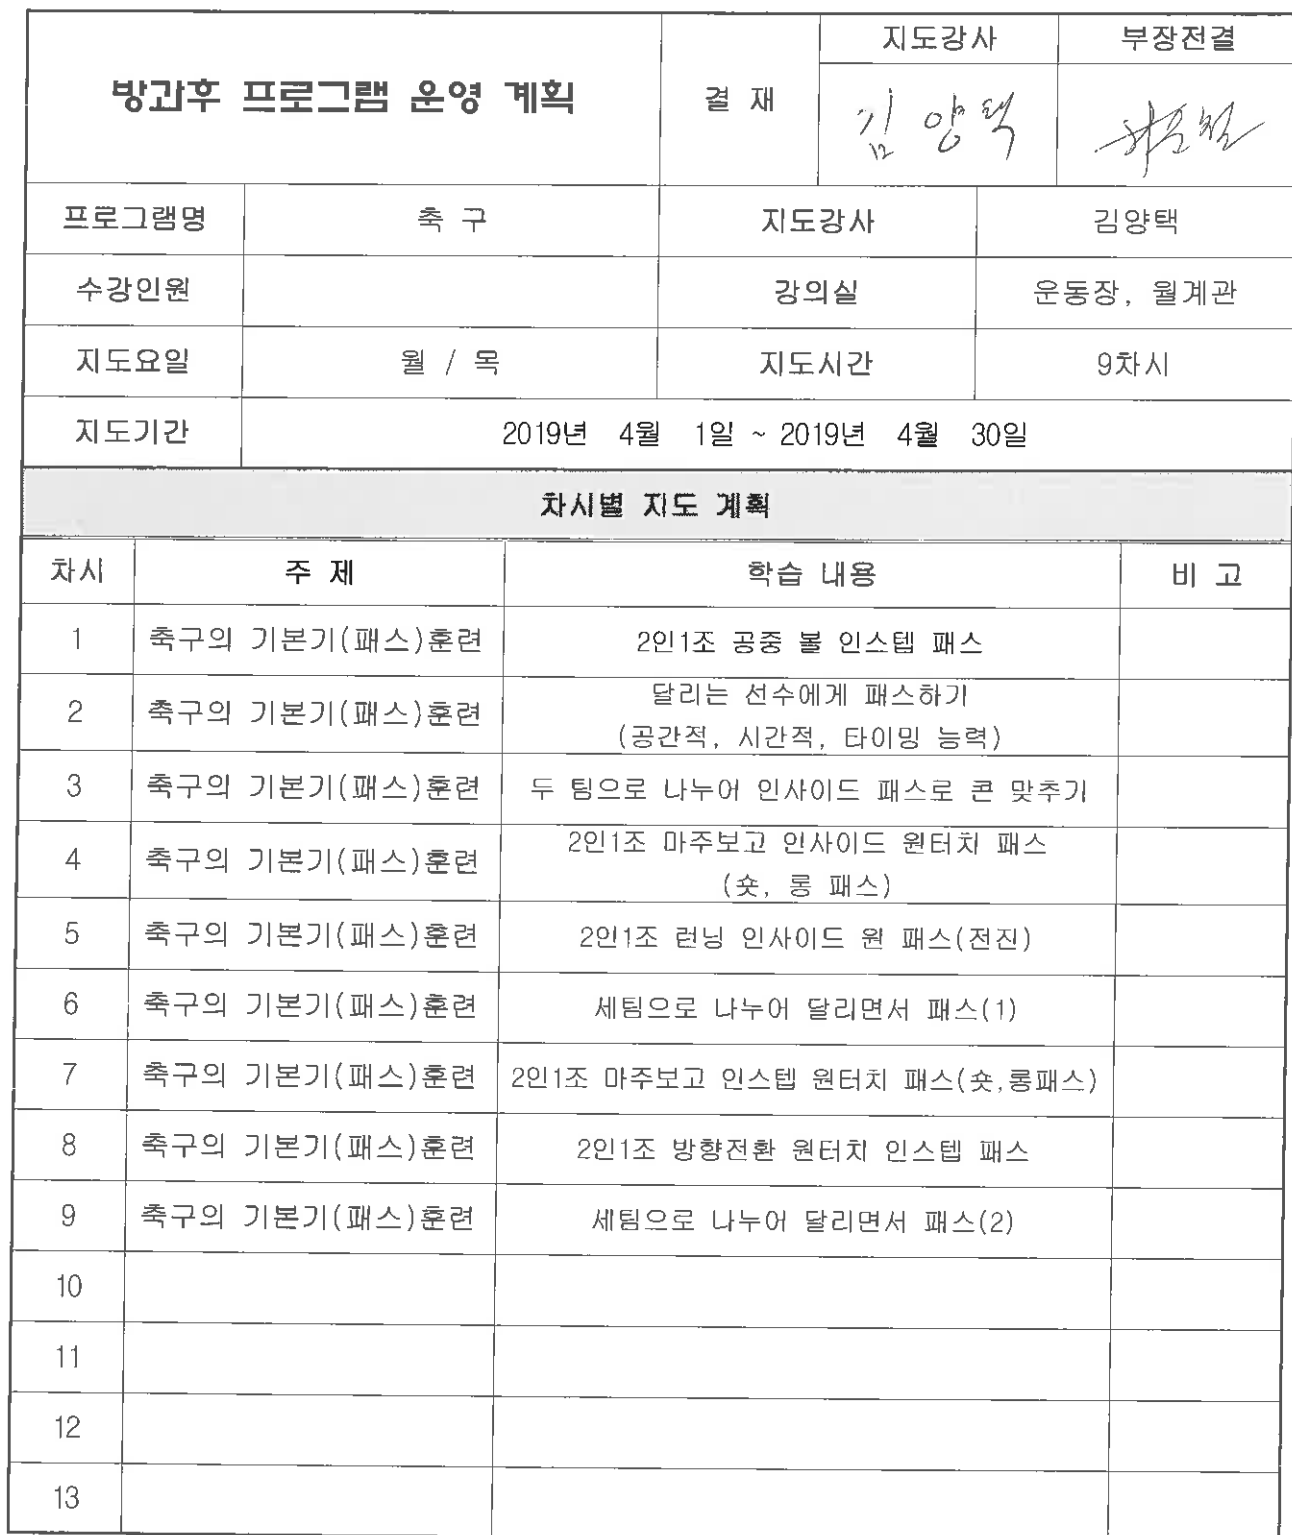 방과후 프로그램 운영 계획
결 재
지도강사
부장전결
김양택
프로그램명
축 구
지도강사
김양택
수강인원
강의실
운동장, 월계관
지도요일
월 / 목
지도시간
9차시
지도기간
2019년 4월 1일 ~ 2019년 4월 30일
차시별 지도 계획
차시
주 제
학습 내용
비 고
1
축구의 기본기(패스)훈련
2인1조 공중 볼 인스텝 패스
2
축구의 기본기(패스)훈련
달리는 선수에게 패스하기
(공간적, 시간적, 타이밍 능력)
3
축구의 기본기(패스)훈련
두 팀으로 나누어 인사이드 패스로 콘 맞추기
4
축구의 기본기(패스)훈련
2인1조 마주보고 인사이드 원터치 패스
(숏, 롱 패스)
5
축구의 기본기(패스)훈련
2인1조 런닝 인사이드 원 패스(전진)
6
축구의 기본기(패스)훈련
세팀으로 나누어 달리면서 패스(1)
7
축구의 기본기(패스)훈련
2인1조 마주보고 인스텝 원터치 패스(숏,롱패스)
8
축구의 기본기(패스)훈련
2인1조 방향전환 원터치 인스텝 패스
9
축구의 기본기(패스)훈련
세팀으로 나누어 달리면서 패스(2)
10
11
12
13